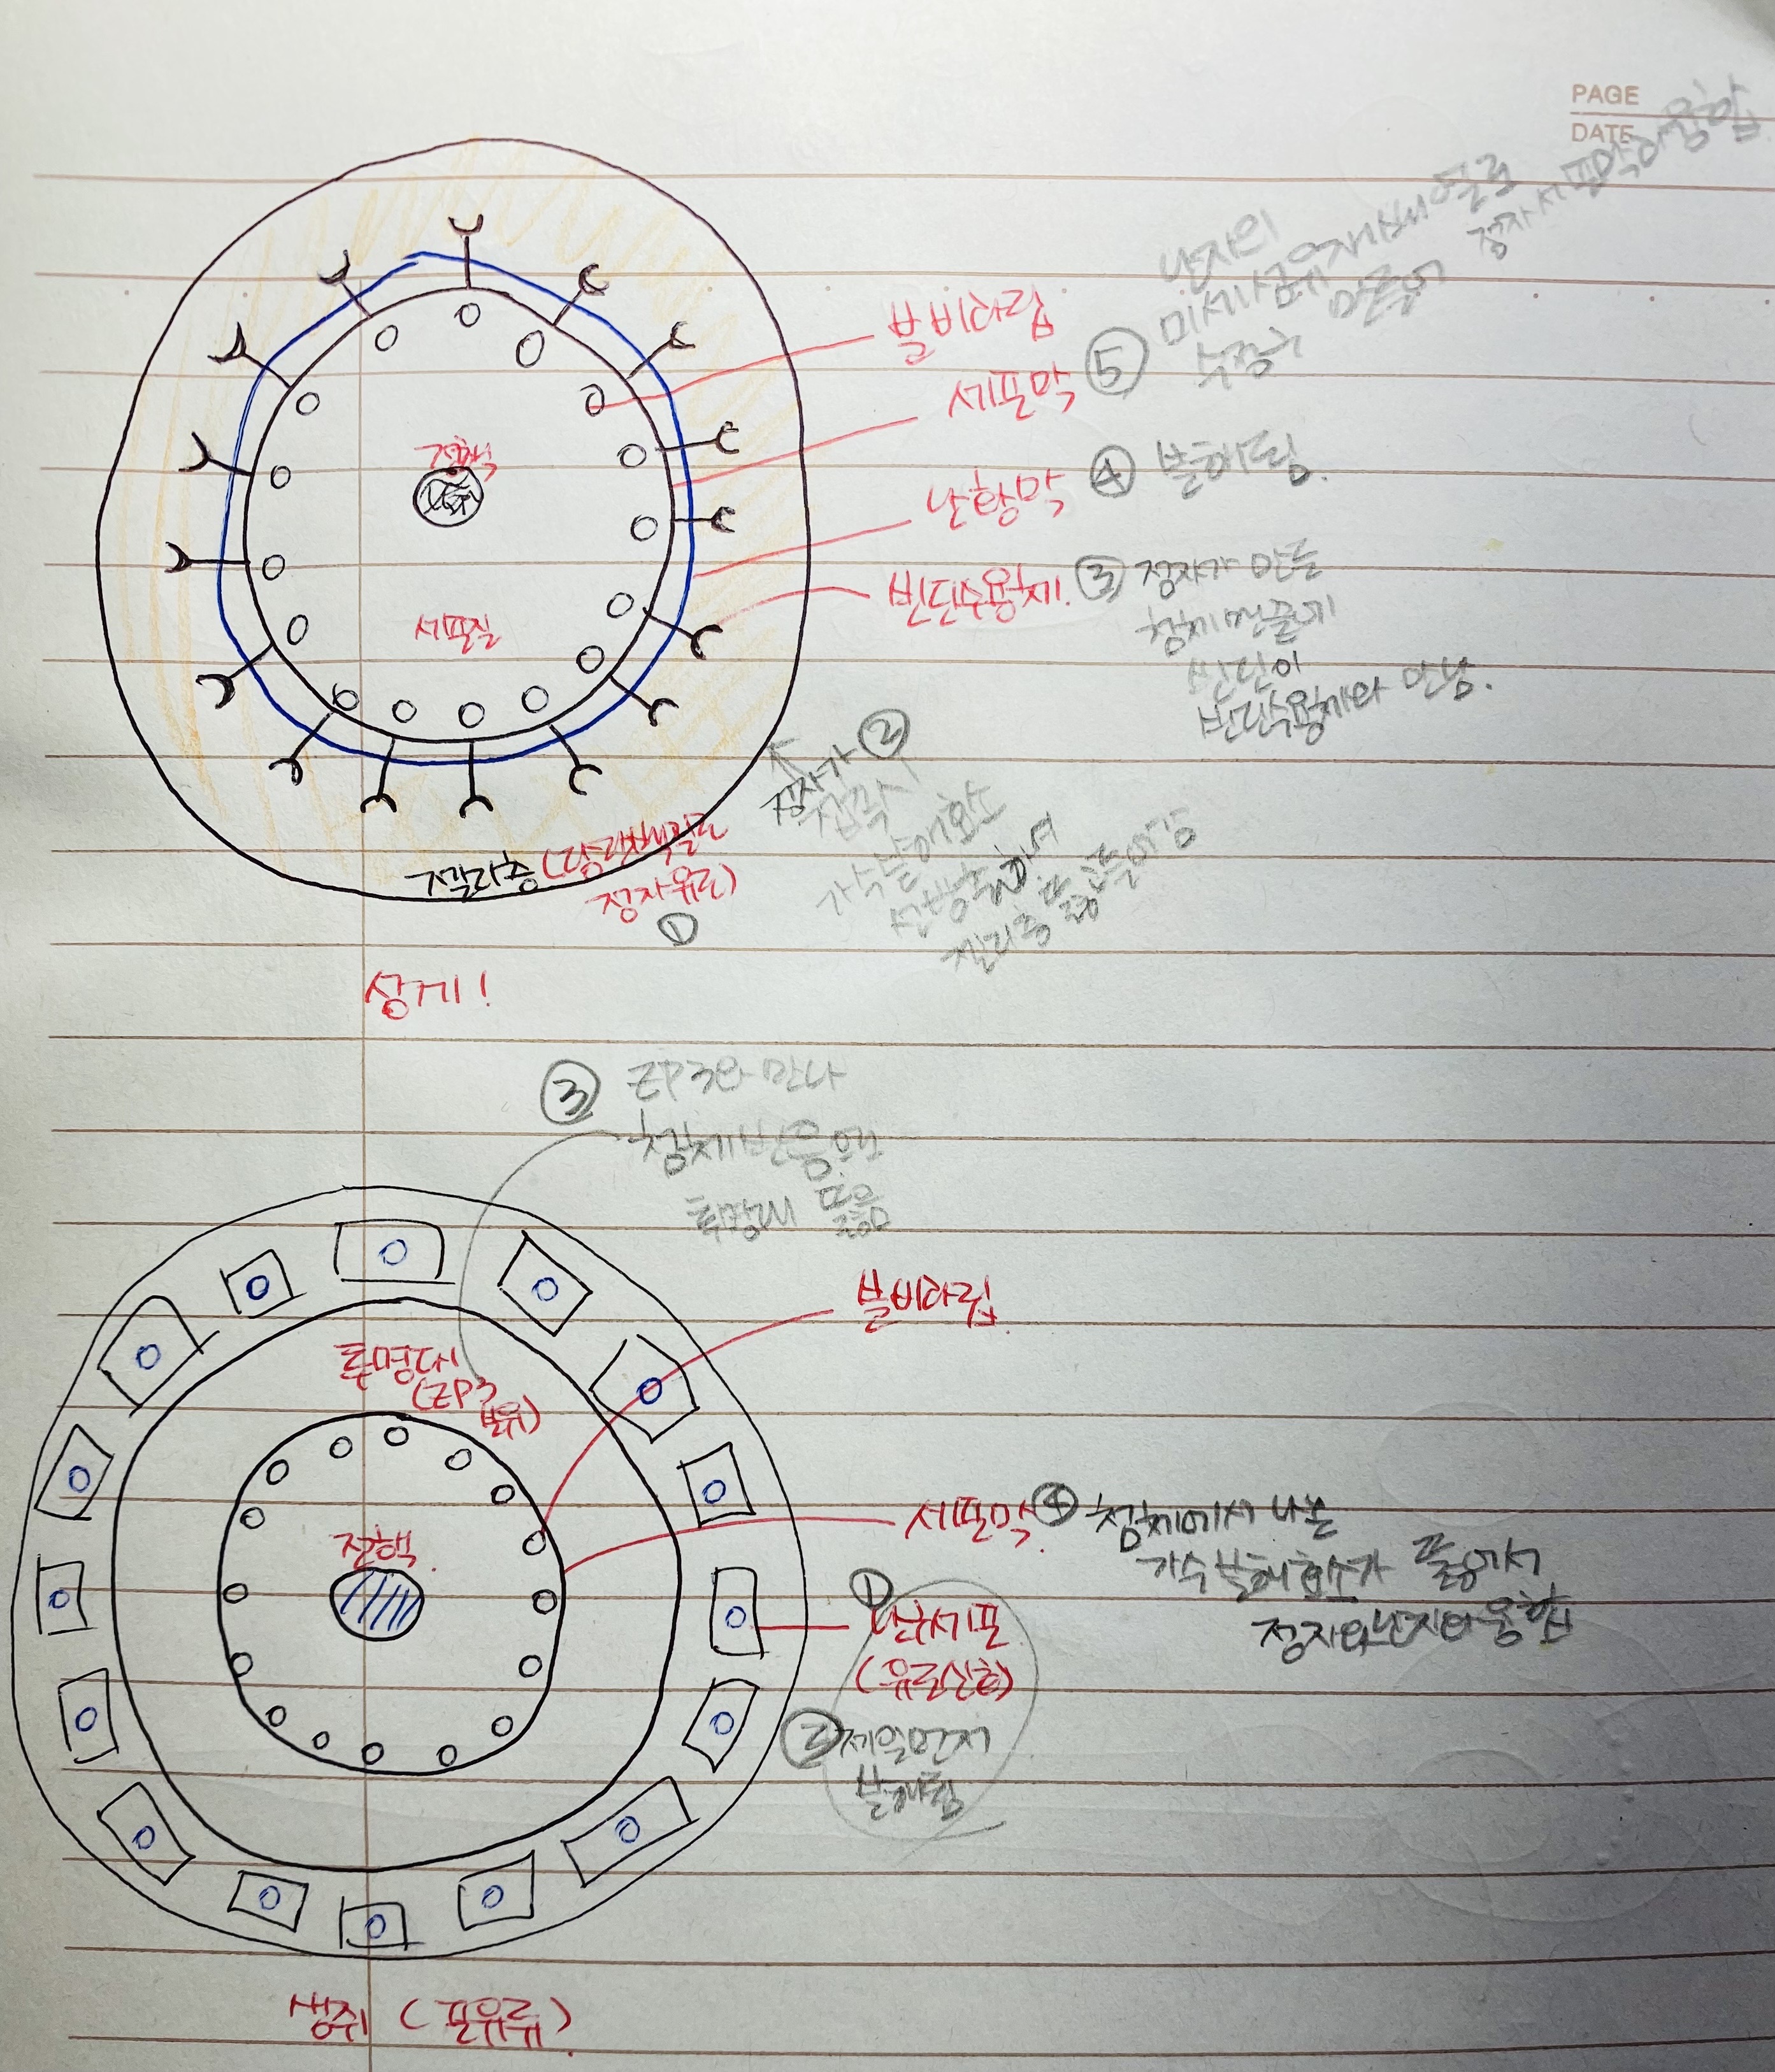 PAGE
DATE
분비과립
세포막
난황막
빈딘수용체.
전핵
세포질
⑤ 난자의
미세섬유재배열로
수정구 만들어
정자세포막이 융합
④ 분해됨.
③ 정자가 만든
첨체 맨끝에
빈딘이
빈딘수용체와 만남.
② 정자가
접촉시
가수분해효소
방출하여
젤리층
젤리층 (당단백질로
정자유도)
①
성게!
③ ZP3와 만나
첨체반응으로
투명대 뚫음
투명대
(ZP3
보유)
분비과립
전핵
세포막
④ 첨체에서 나온
가수분해효소가
정자와난자와융합
①
난구세포
②제일먼저
분해됨
생쥐 (포유류)